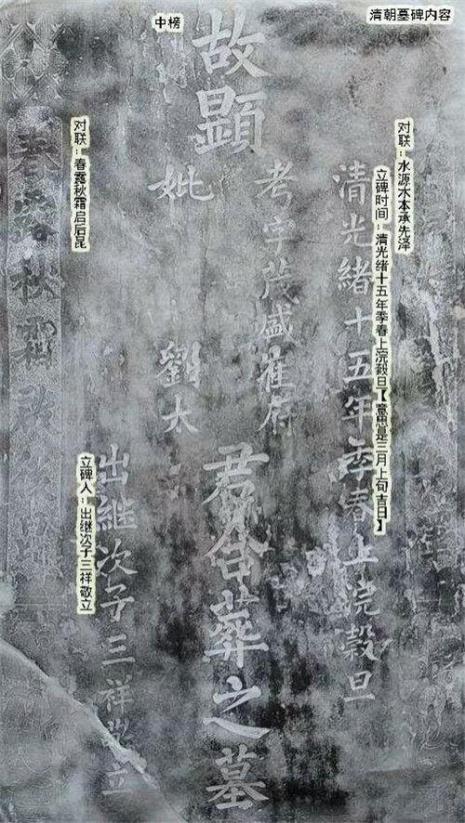 清朝墓碑内容
中榜
对联：水源木本承先泽
立碑时间：清光绪十五年季春上浣穀旦【意思是三月上旬吉日】
清光緒十五年季春上浣穀旦
故顯
考字茂盛崔府
妣
劉太
君合葬之墓
出继次子三祥敬立
立碑人：出继次子三祥敬立
对联：春露秋霜启后昆
春露秋霜啟